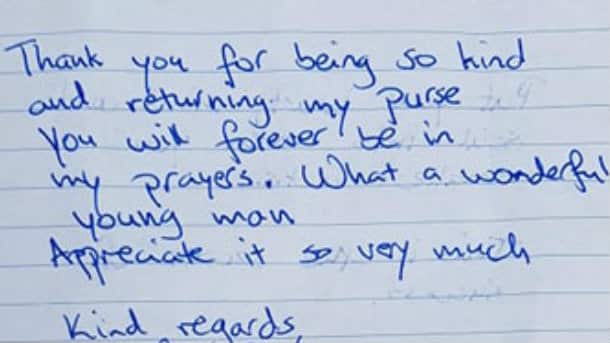 Thank you for being so kind
and returning my purse
You will forever be in
my prayers. What a wonderful
young man
Appreciate it so very much
Kind regards,